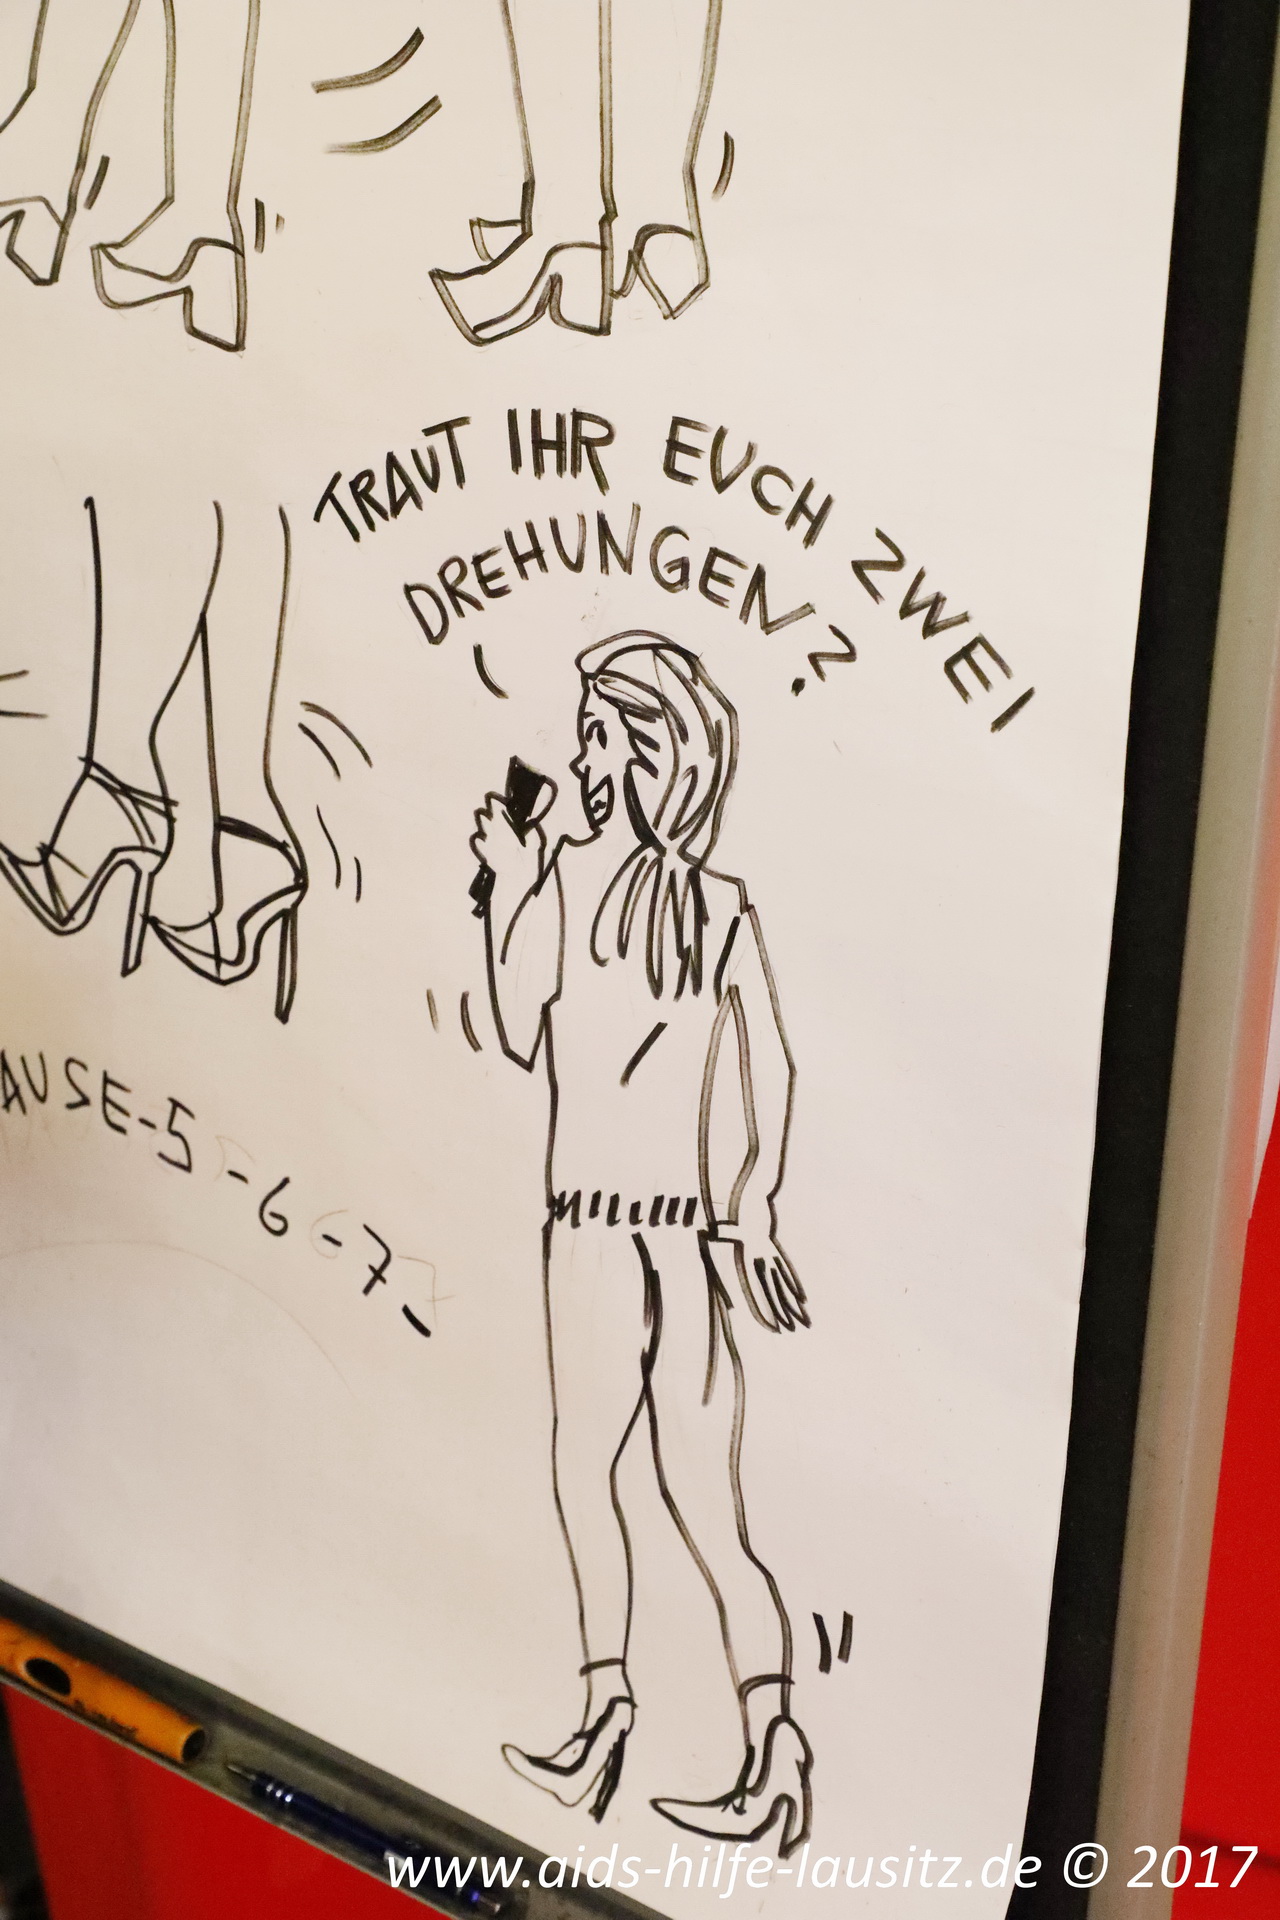 TRAUT IHR EUCH ZWEI
DREHUNGEN?
AUSE-5-6-7-
www.aids-hilfe-lausitz.de © 2017